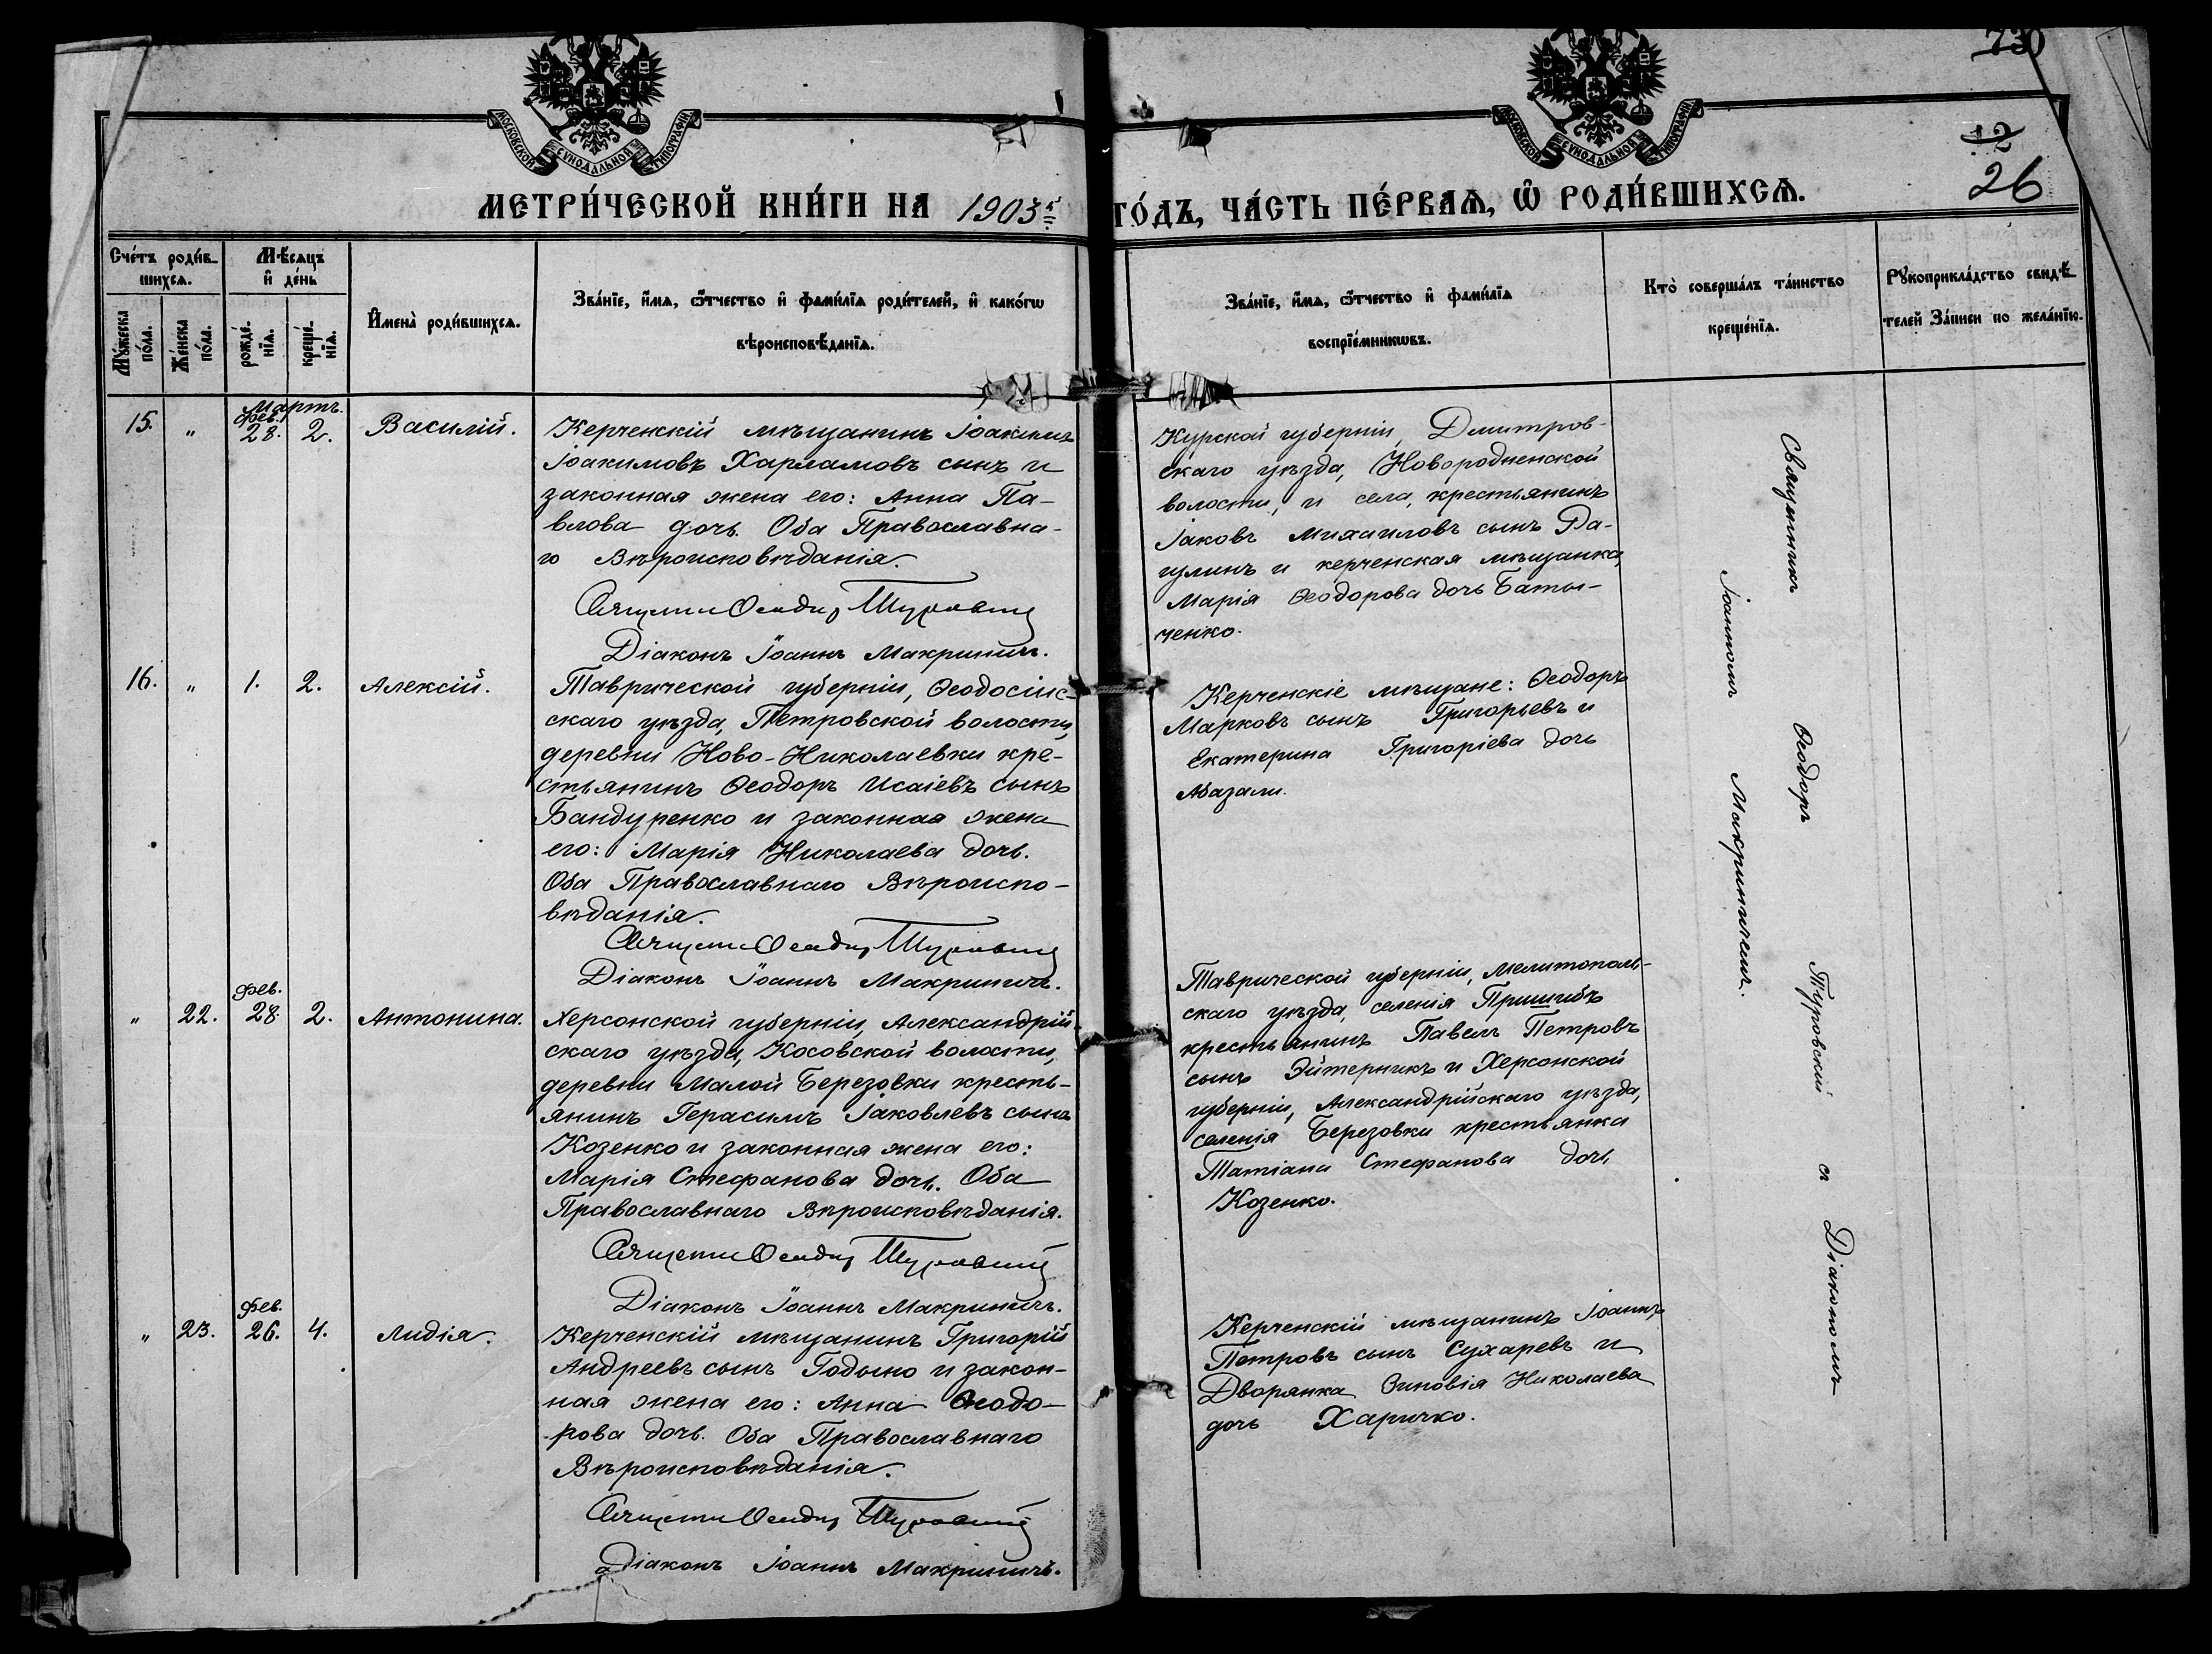 730
12
26
МОСКОВСКОЙ СѴНОДАЛЬНОЙ ТИПОГРАФІИ
МОСКОВСКОЙ СѴНОДАЛЬНОЙ ТИПОГРАФІИ
МЕТРИ́ЧЕСКОЙ КНИ́ГИ НА 1903й
ГО́ДЪ, ЧА́СТЬ ПЕ́РВАѦ, Ѿ РОДИ́ВШИХСѦ.
Сче́тъ роди́в-
шихсѧ.
Мѣ́сѧцъ
и҆ де́нь
Мꙋ́жеска
по́ла.
Же́нска
по́ла.
рожде́-
нїѧ.
креще́-
нїѧ.
И҆мена̀ роди́вшихсѧ.
Зва́нїе, и҆́мѧ, ѻ҆́тчество и҆ фами́лїѧ роди́телей, и҆ како́гѡ
вѣроисповѣ́данїѧ.
Зва́нїе, и҆́мѧ, ѻ҆́тчество и҆ фами́лїѧ
воспрїе́мникѡвъ.
Кто̀ соверша́лъ та́инство
креще́нїѧ.
Рꙋкоприкла́дство свидѣ́-
телей за́писи по жела́нїю.
Мартъ.
фев.
15. " 28. 2. Василій.
Керченскій мѣщанинъ Іоакимъ
Іоакимовъ Харламовъ сынъ и
законная жена его: Анна Па-
влова дочь. Оба Православна-
го Вѣроисповѣданія.
Священ. Ѳеодоръ Туровскій
Діаконъ Іоаннъ Макриничъ.
Курской губерніи, Дмитров-
скаго уѣзда,
волости, и села, крестьянинъ
Іаковъ Михаиловъ сынъ
и керченская мѣщанка
Марія Ѳеодорова дочь Баты-
ченко.
16. " 1. 2. Алексій.
Таврической губерніи, Ѳеодосій-
скаго уѣзда, Петровской волости,
деревни Ново-Николаевки кре-
стьянинъ Ѳеодоръ Исаіевъ сынъ
Бандуренко и законная жена
его: Марія Николаева дочь.
Оба Православнаго Вѣроиспо-
вѣданія.
Священ. Ѳеодоръ Туровскій
Діаконъ Іоаннъ Макриничъ.
Керченскіе мѣщане: Ѳеодоръ
Марковъ сынъ Григорьевъ и
Екатерина Григоріева дочь
Абазали.
фев.
" 22. 28. 2. Антонина.
Херсонской губерніи, Александрій-
скаго уѣзда, Косовской волости,
деревни Малой Березовки кресть-
янинъ Герасимъ Іаковлевъ сынъ
Козенко и законная жена его:
Марія Стефанова дочь. Оба
Православнаго Вѣроисповѣданія.
Священ. Ѳеодоръ Туровскій
Діаконъ Іоаннъ Макриничъ.
Таврической губерніи, Мелитополь-
скаго уѣзда, селенія Пришибъ
крестьянинъ Павелъ Петровъ
сынъ Эйтерникъ и Херсонской
губерніи, Александрійскаго уѣзда,
селенія Березовки крестьянка
Татіана Стефанова дочь
Козенко.
фев.
" 23. 26. 4. Лидія.
Керченскій мѣщанинъ Григорій
Андреевъ сынъ Годыно и закон-
ная жена его: Анна Ѳеодо-
рова дочь. Оба Православнаго
Вѣроисповѣданія.
Священ. Ѳеодоръ Туровскій
Діаконъ Іоаннъ Макриничъ.
Керченскій мѣщанинъ Іоаннъ
Петровъ сынъ Сухаревъ и
Дворянка Зиновія Николаева
дочь Харичко.
Священникъ Ѳеодоръ Туровскій съ Діакономъ
Іоанномъ Макриничемъ.